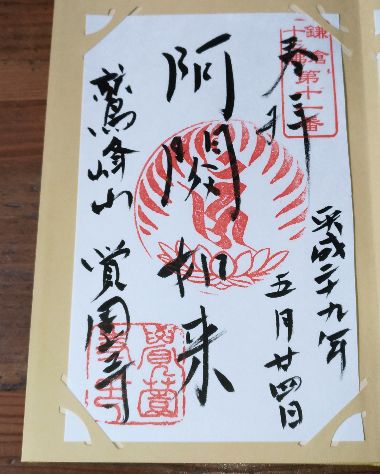 鎌倉
十三佛第十一番
奉拝
平成二十九年
五月廿四日
阿閦如来
鷲峰山 覚園寺